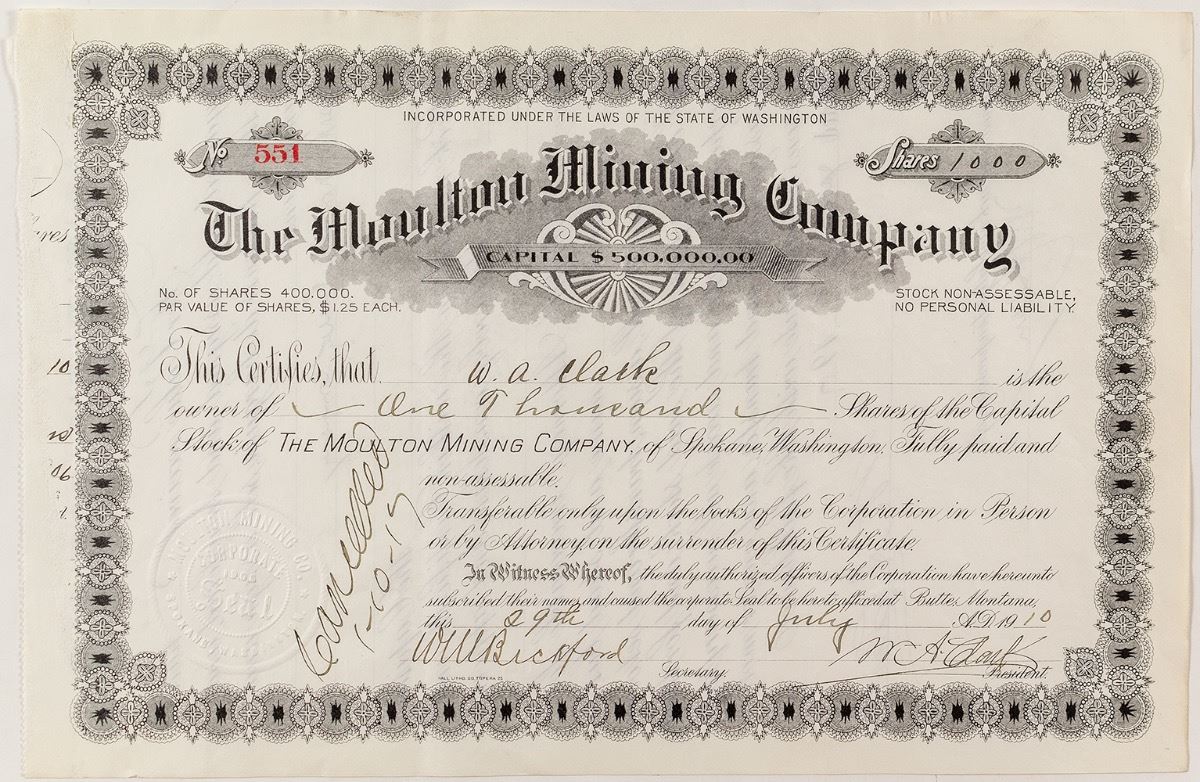 INCORPORATED UNDER THE LAWS OF THE STATE OF WASHINGTON
No 551
Shares 1000
The Moulton Mining Company
CAPITAL $500,000.00
No. OF SHARES 400,000.
PAR VALUE OF SHARES, $1.25 EACH.
STOCK NON-ASSESSABLE,
NO PERSONAL LIABILITY.
This Certifies, that W. A. Clark is the
owner of One Thousand Shares of the Capital
Stock of THE MOULTON MINING COMPANY, of Spokane, Washington. Fully paid and
non-assessable.
Transferable only upon the books of the Corporation in Person
or by Attorney, on the surrender of this Certificate.
In Witness Whereof, the duly authorized officers of the Corporation have hereunto
subscribed their names and caused the corporate Seal to be hereto affixed at Butte, Montana,
this 29th day of July A.D. 1910
W M Bickford
Secretary.
W A Clark
President.
Cancelled
1-10-17
MOULTON MINING CO.
CORPORATE
Seal
SPOKANE, WASH.
10
06